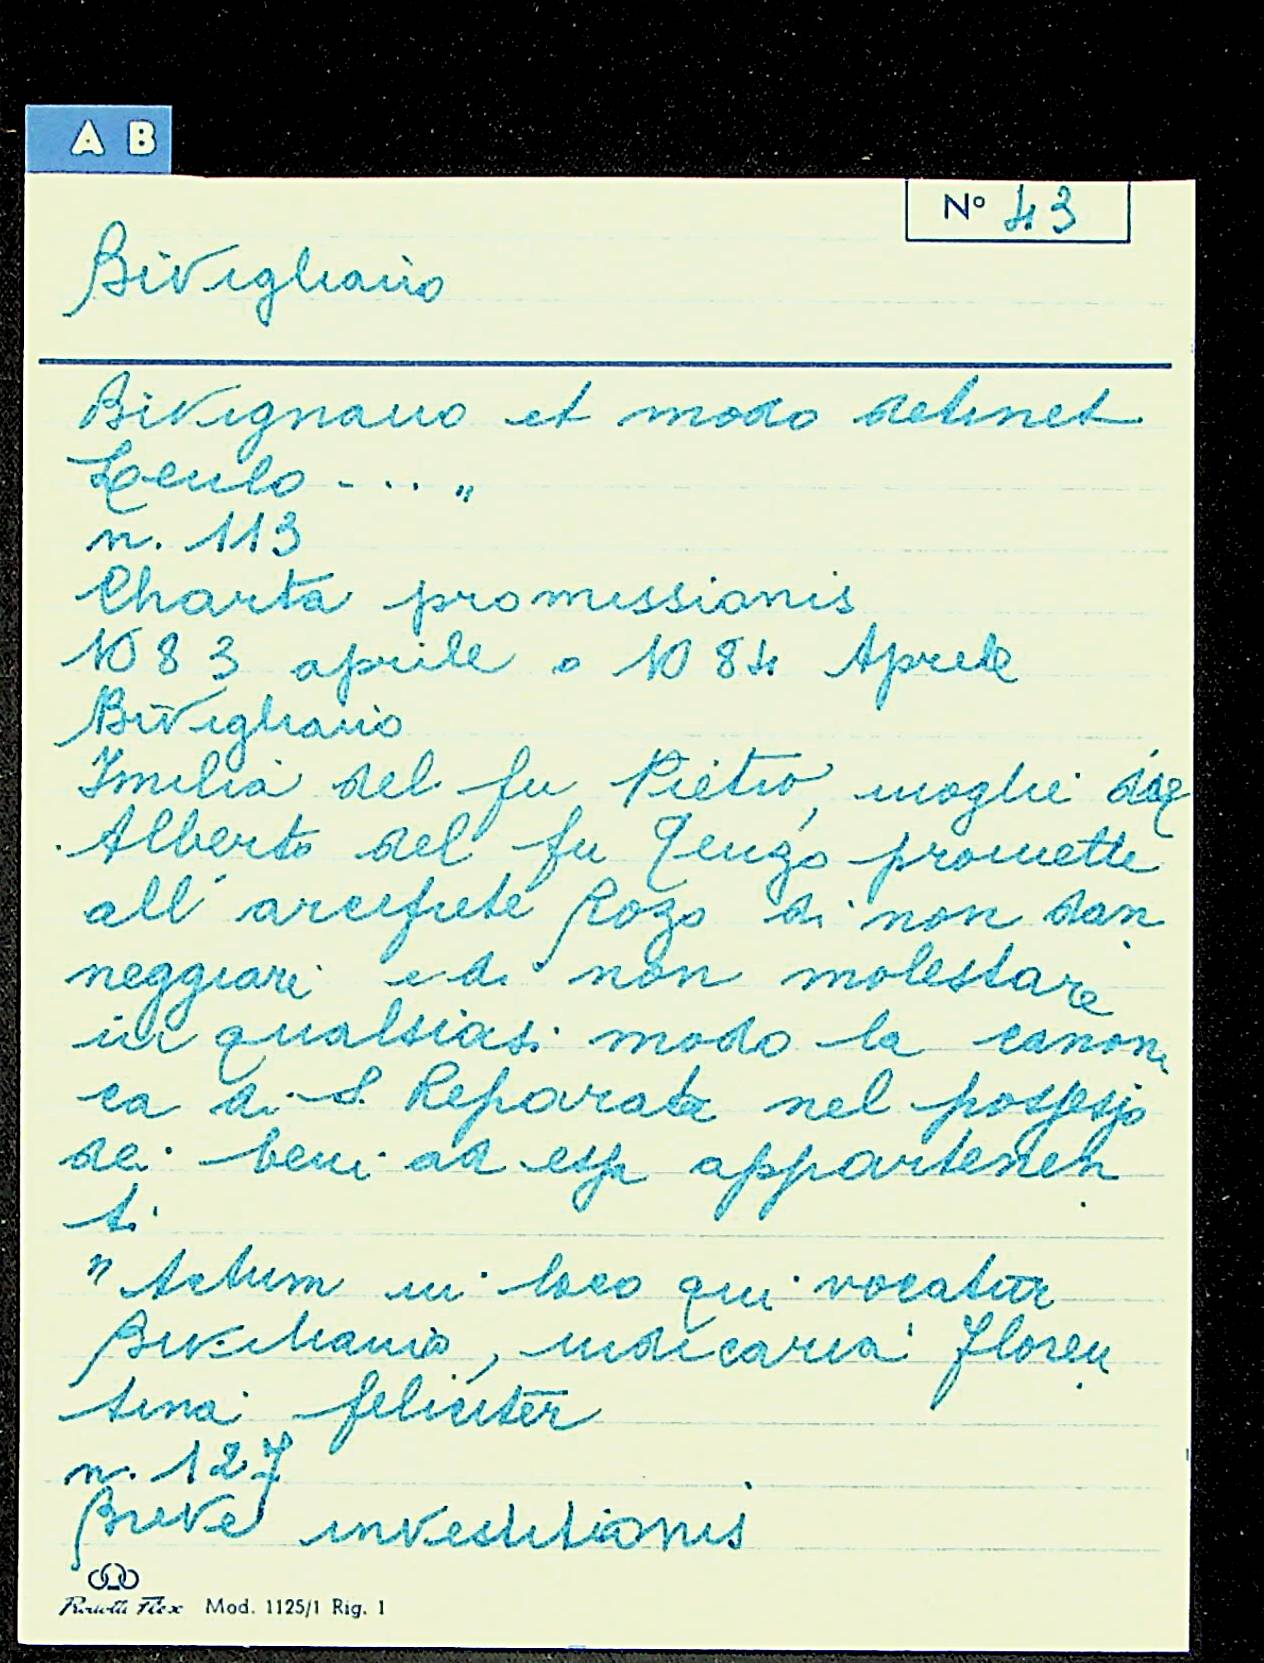 A B
N° 43
Bivigliano
Bivignano et modo detinet
Teulo - ... "
n. 113
Charta promissionis
1083 aprile o 1084 Aprile
Bivigliano
Imilia del fu Pietro, moglie di
Alberto del fu Teuzo promette
all' arciprete Rozo di non dan
neggiare e di non molestare
in qualsiasi modo la canoni
ca di S. Reparata nel possesso
dei beni ad essa appartenen
ti.
" Actum in loco qui vocatur
Biviliano, iudicaria Floren
tina feliciter
n. 127
Breve investitionis
Flex Mod. 1125/1 Rig. 1